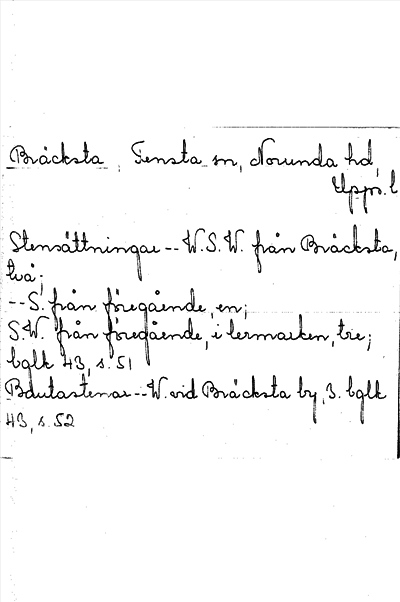 Bräcksta, Tensta sn, Norunda hd,
Upps. l
Stensättningar -- W.S.W. från Bräcksta,
två;
-- S. från föregående, en;
S.W. från föregående, i lermarken, tre;
bglk 43, s. 51
Bautastenar -- W. vid Bräcksta by, 3. bglk
43, s. 52